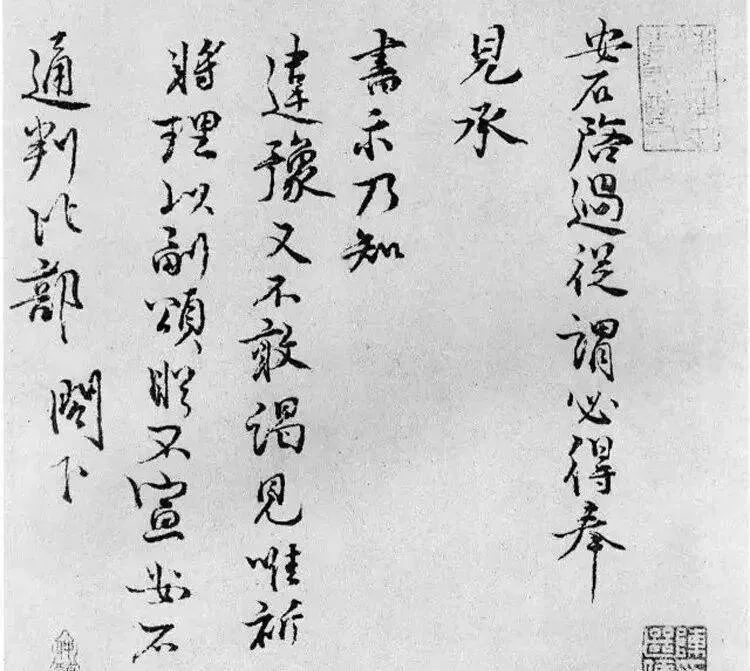 安石啓過從謂必得奉
見承
書示乃知
違豫又不敢謁見唯祈
將理以副頌詠不宣安石
通判比部 閣下